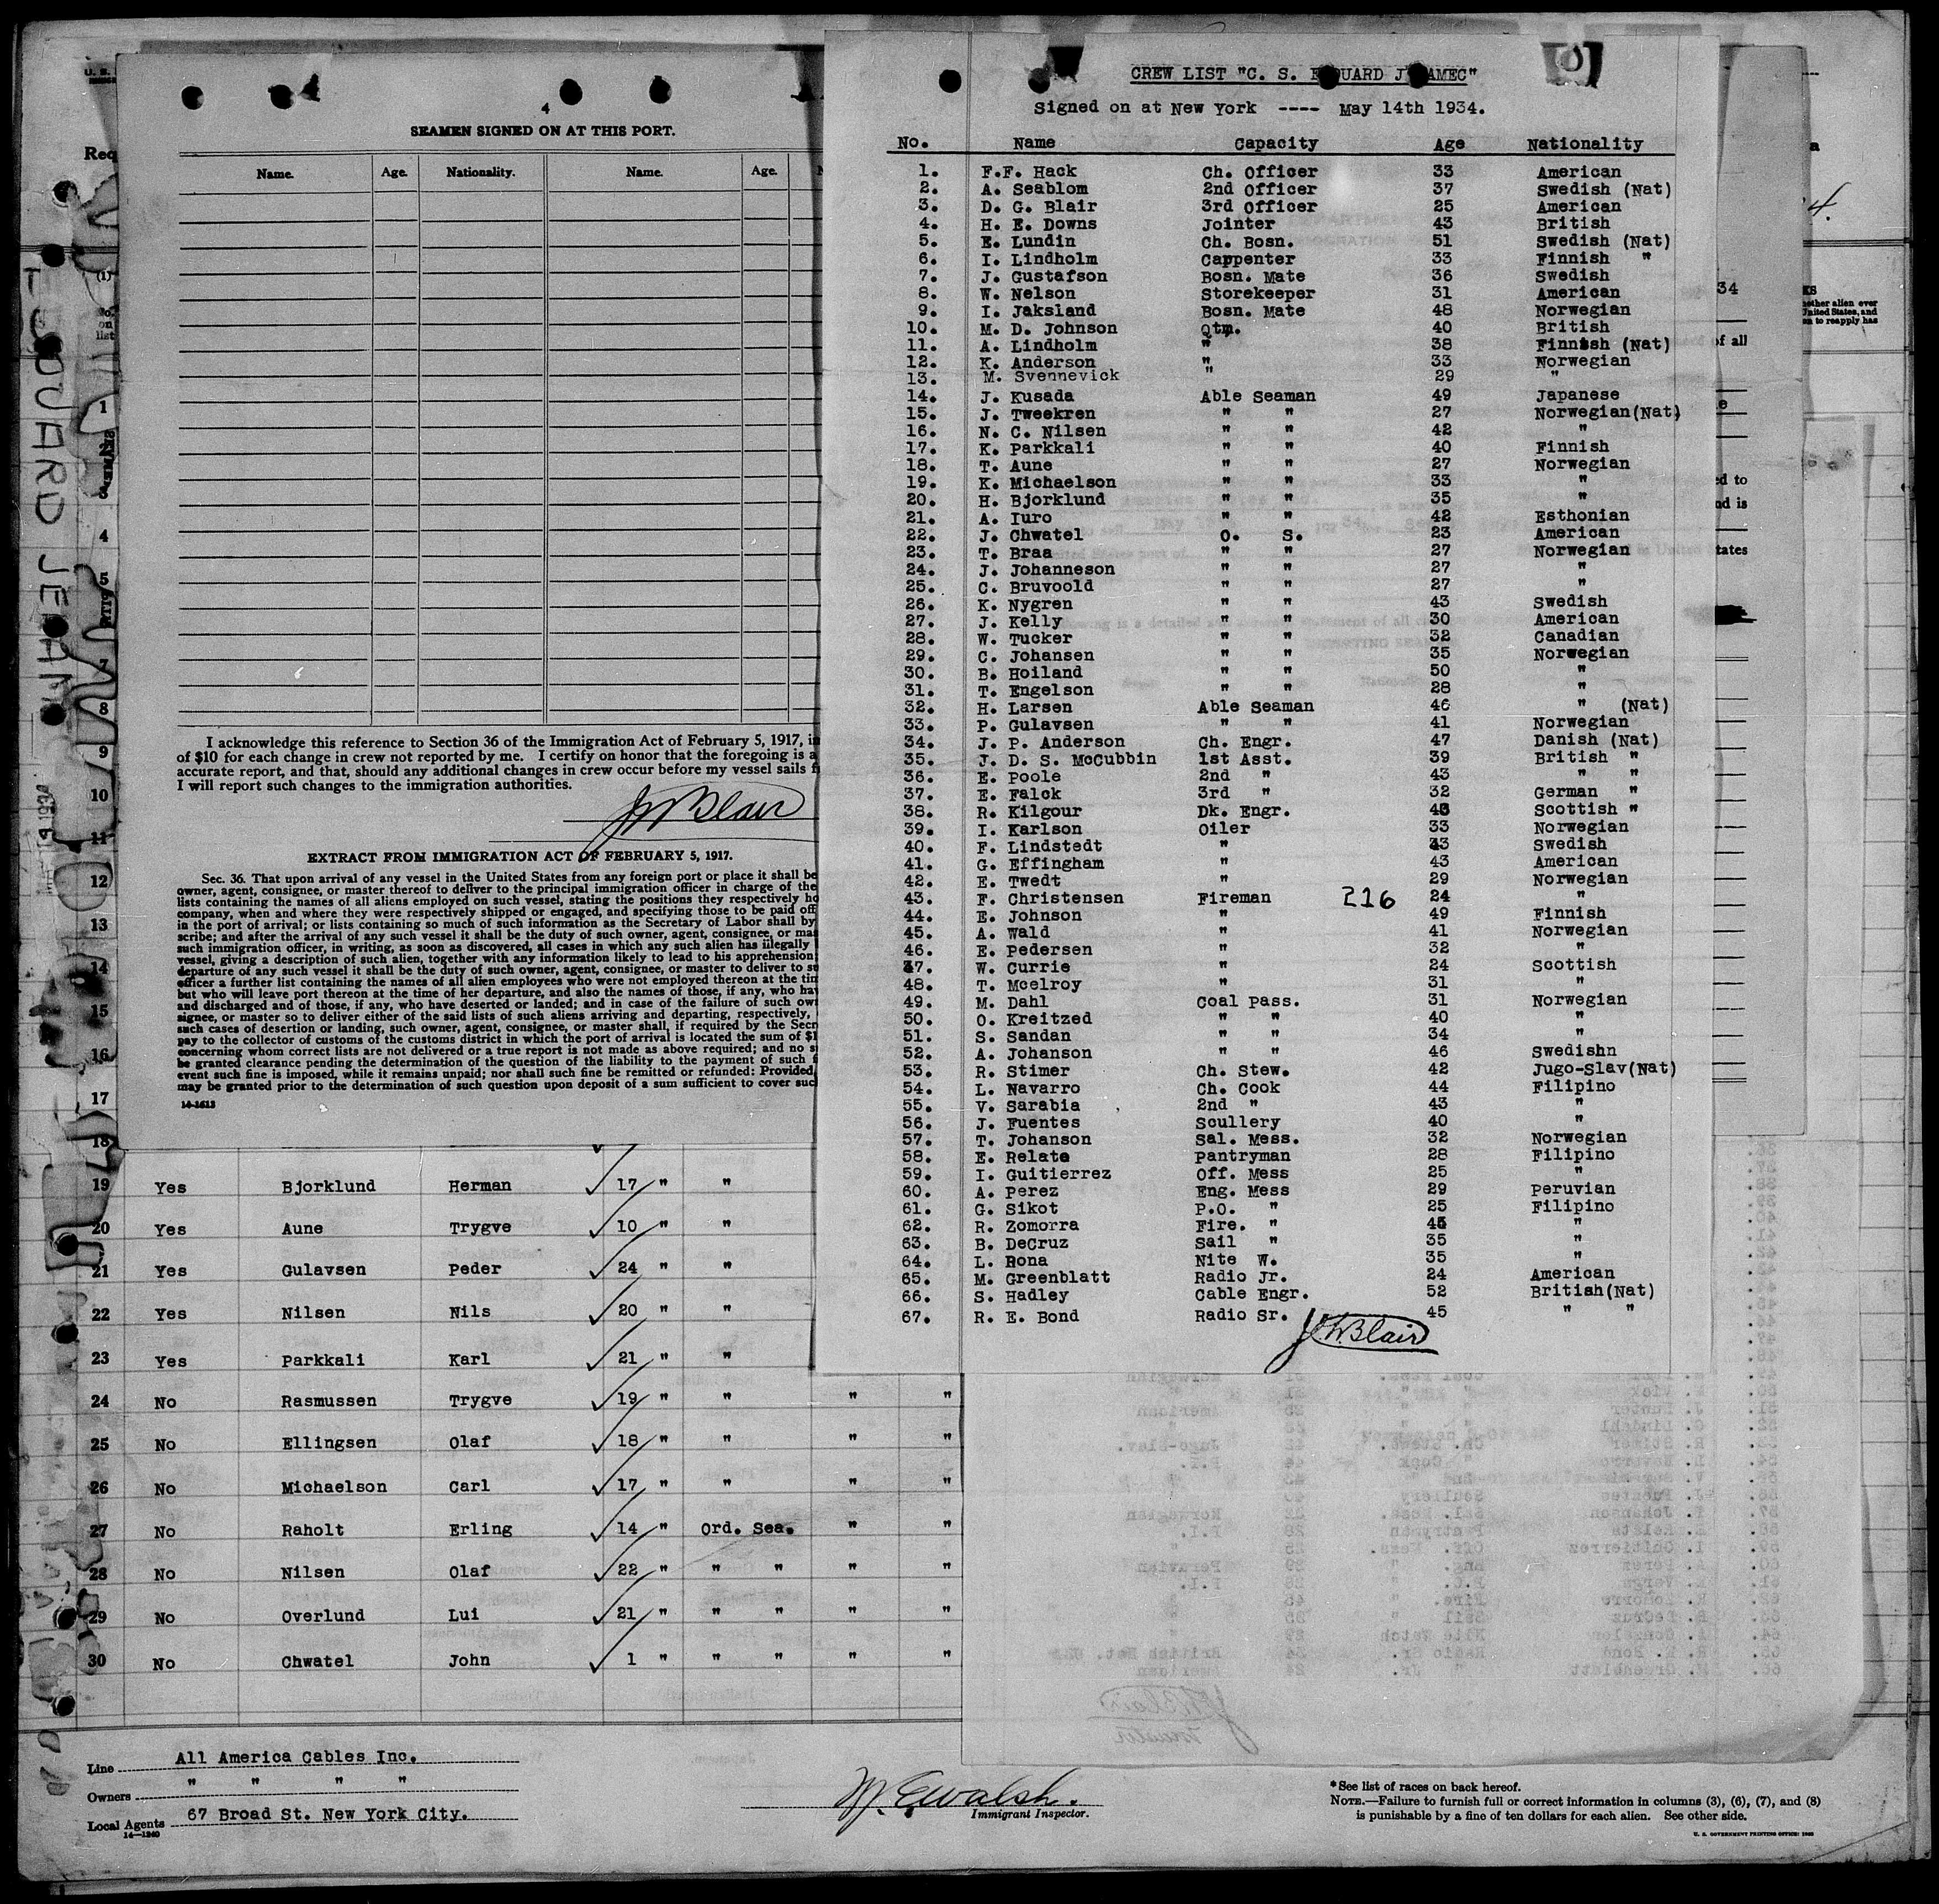 4
SEAMEN SIGNED ON AT THIS PORT.
Name. Age. Nationality. Name. Age.
I acknowledge this reference to Section 36 of the Immigration Act of February 5, 1917,
of $10 for each change in crew not reported by me. I certify on honor that the foregoing is a
accurate report, and that, should any additional changes in crew occur before my vessel sails
I will report such changes to the immigration authorities.
EXTRACT FROM IMMIGRATION ACT OF FEBRUARY 5, 1917.
Sec. 36. That upon arrival of any vessel in the United States from any foreign port or place it shall be
owner, agent, consignee, or master thereof to deliver to the principal immigration officer in charge of the
lists containing the names of all aliens employed on such vessel, stating the positions they respectively
company, when and where they were respectively shipped or engaged, and specifying those to be paid off
in the port of arrival; or lists containing so much of such information as the Secretary of Labor shall by
scribe; and after the arrival of any such vessel it shall be the duty of such owner, agent, consignee, or
such immigration officer, in writing, as soon as discovered, all cases in which any such alien has illegally
vessel, giving a description of such alien, together with any information likely to lead to his apprehension
departure of any such vessel it shall be the duty of such owner, agent, consignee, or master to deliver to
officer a further list containing the names of all alien employees who were not employed thereon at the
but who will leave port thereon at the time of her departure, and also the names of those, if any, who
and discharged and of those, if any, who have deserted or landed; and in case of the failure of such
signee, or master so to deliver either of the said lists of such aliens arriving and departing, respectively,
such cases of desertion or landing, such owner, agent, consignee, or master shall, if required by the
pay to the collector of customs of the customs district in which the port of arrival is located the sum of
concerning whom correct lists are not delivered or a true report is not made as above required; and no
be granted clearance pending the determination of the question of the liability to the payment of such
event such fine is imposed, while it remains unpaid; nor shall such fine be remitted or refunded: Provided
may be granted prior to the determination of such question upon deposit of a sum sufficient to cover
14-1613
CREW LIST "C. S.
Signed on at New York ---- May 14th 1934.
No. Name Capacity Age Nationality
1. F.F. Hack Ch. Officer 33 American
2. A. Seablom 2nd Officer 37 Swedish (Nat)
3. D. G. Blair 3rd Officer 25 American
4. H. E. Downs Jointer 43 British
5. E. Lundin Ch. Bosn. 51 Swedish (Nat)
6. I. Lindholm Carpenter 33 Finnish "
7. J. Gustafson Bosn. Mate 36 Swedish
8. W. Nelson Storekeeper 31 American
9. I. Jaksland Bosn. Mate 48 Norwegian
10. M. D. Johnson Qtm. 40 British
11. A. Lindholm " 38 Finnish (Nat)
12. K. Anderson " 33 Norwegian
13. M. Svennevick " 29 "
14. J. Kusada Able Seaman 49 Japanese
15. J. Tweekren " " 27 Norwegian(Nat)
16. N. C. Nilsen " " 42 "
17. K. Parkkali " " 40 Finnish
18. T. Aune " " 27 Norwegian
19. K. Michaelson " " 33 "
20. H. Bjorklund " " 35 "
21. A. Iuro " " 42 Esthonian
22. J. Chwatel O. S. 23 American
23. T. Braa " " 27 Norwegian
24. J. Johanneson " " 27 "
25. C. Bruvoold " " 27 "
26. K. Nygren " " 43 Swedish
27. J. Kelly " " 30 American
28. W. Tucker " " 32 Canadian
29. C. Johansen " " 35 Norwegian
30. B. Hoiland " " 50 "
31. T. Engelson " " 28 "
32. H. Larsen Able Seaman 46 " (Nat)
33. P. Gulavsen " " 41 Norwegian
34. J. P. Anderson Ch. Engr. 47 Danish (Nat)
35. J. D. S. McCubbin 1st Asst. 39 British "
36. E. Poole 2nd " 43 " "
37. E. Falck 3rd " 32 German "
38. R. Kilgour Dk. Engr. Scottish "
39. I. Karlson Oiler 33 Norwegian
40. F. Lindstedt " Swedish
41. G. Effingham " 43 American
42. E. Twedt " 29 Norwegian
43. F. Christensen Fireman 216 24 "
44. E. Johnson " 49 Finnish
45. A. Wald " 41 Norwegian
46. E. Pedersen " 32 "
47. W. Currie " 24 Scottish
48. T. Mcelroy " 31 "
49. M. Dahl Coal Pass. 31 Norwegian
50. O. Kreitzed " " 40 "
51. S. Sandan " " 34 "
52. A. Johanson " " 46 Swedishn
53. R. Stimer Ch. Stew. 42 Jugo-Slav(Nat)
54. L. Navarro Ch. Cook 44 Filipino
55. V. Sarabia 2nd " 43 "
56. J. Fuentes Scullery 40 "
57. T. Johanson Sal. Mess. 32 Norwegian
58. E. Relate Pantryman 28 Filipino
59. I. Guitierrez Off. Mess 25 "
60. A. Perez Eng. Mess 29 Peruvian
61. G. Sikot P.O. " 25 Filipino
62. R. Zomorra Fire. " "
63. B. DeCruz Sail " 35 "
64. L. Rona Nite W. 35 "
65. M. Greenblatt Radio Jr. 24 American
66. S. Hadley Cable Engr. 52 British(Nat)
67. R. E. Bond Radio Sr. 45 " "
JWBlair
19 Yes Bjorklund Herman 17 " "
20 Yes Aune Trygve 10 " "
21 Yes Gulavsen Peder 24 " "
22 Yes Nilsen Nils 20 " "
23 Yes Parkkali Karl 21 " "
24 No Rasmussen Trygve 19 " " " "
25 No Ellingsen Olaf 18 " " " "
26 No Michaelson Carl 17 " " " "
27 No Raholt Erling 14 " Ord. Sea. " "
28 No Nilsen Olaf 22 " " " " "
29 No Overlund Lui 21 " " " " "
30 No Chwatel John 1 " " " " "
Line All America Cables Inc.
Owners " " " "
Local Agents 67 Broad St. New York City.
14-1240
Immigrant Inspector.
*See list of races on back hereof.
NOTE.—Failure to furnish full or correct information in columns (3), (6), (7), and (8)
is punishable by a fine of ten dollars for each alien. See other side.
U. S. GOVERNMENT PRINTING OFFICE